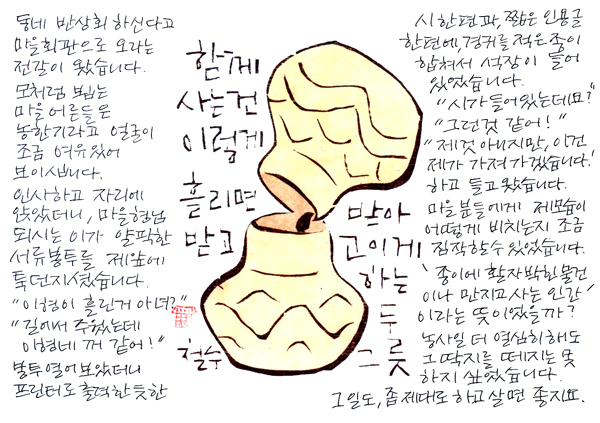 동네 반상회 하신다고
마을회관으로 오라는
전갈이 왔습니다.
모처럼 뵙는
마을 어른들은
농한기라고 얼굴이
조금 여유있어
보이십니다.
인사하고 자리에
앉았더니, 마을형님
되시는 이가 얄팍한
서류봉투를 제 쪽에
툭 던지셨습니다.
"이형이 흘린거 아녀?"
"길에서 주웠는데
이형네 꺼 같어!"
봉투 열어보았더니
프린터로 출력한 듯한
함께
사는건
이렇게
흘리면
받고
받아
고이게
하는
두
그릇
철수
시 한편과, 짧은 인용글
한편에, 경귀를 적은 종이
합쳐서 석장이 들어
있었습니다.
"시가 들어있는데요?"
"그런것 같어!"
"제것 아니지만, 이건
제가 가져가겠습니다."
하고 들고 왔습니다.
마을 분들에게 제 모습이
어떻게 비치는지 조금
짐작할 수 있었습니다.
'종이에 활자 박힌 물건
이나 만지고 사는 인간'
이라는 뜻이었을까?
농사일 더 열심히 해도
그 딱지를 떼지는 못
하지 싶었습니다.
그 일도, 좀 제대로 하고 살면 좋지요.